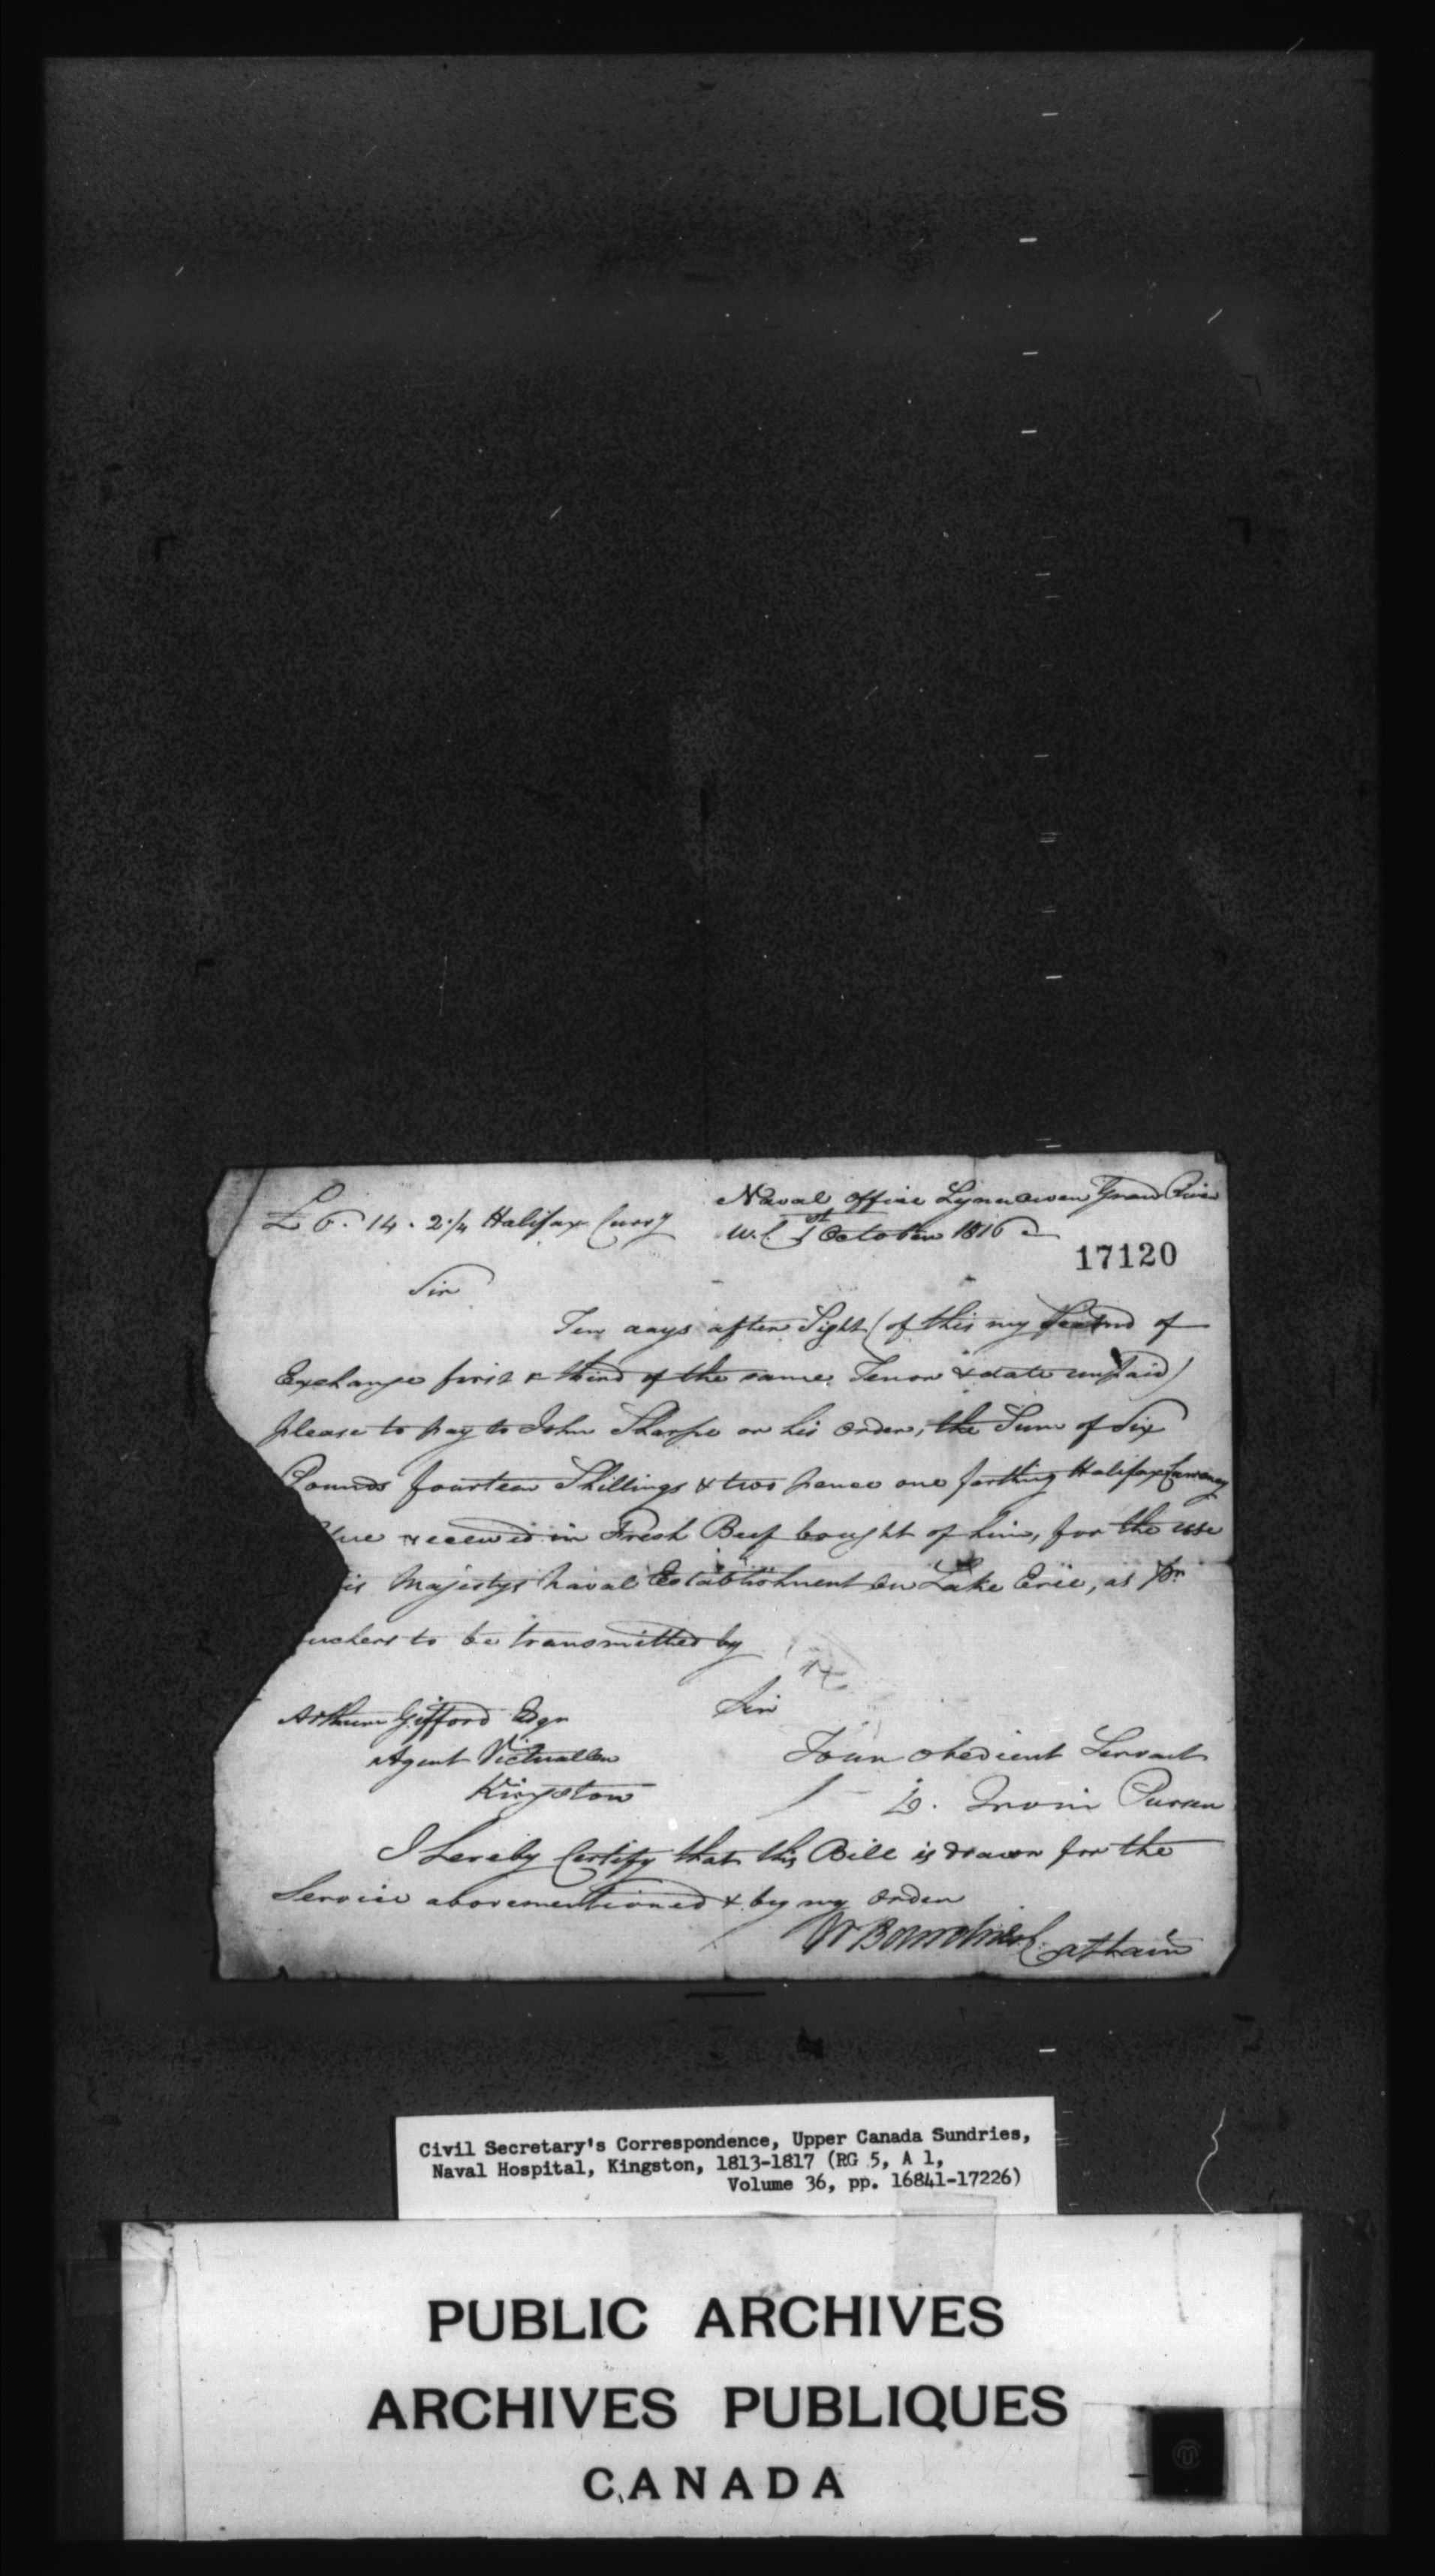 £6. 14. 2 1/4 Halifax Curry
Naval Office Grand River
U.C. 1st October 1816
17120
Sir
Ten days after Sight (of this my Second of
Exchange first & third of the same Tenor & date unpaid)
please to pay to John Sharpe or his order, the Sum of Six
Pounds fourteen Shillings & two pence one farthing Halifax Currency
lue received in Fresh Beef bought of him, for the use
is Majestys Naval Establishment on Lake Erie, as pr
uchers to be transmitted by
Sir
Arthur Gifford Esqr
Agent Victualler
Kingston
Your obedient Servant
Irvin Purser
I hereby Certify that this Bill is drawn for the
Service abovementioned & by my order
W Bourchier Captain
Civil Secretary's Correspondence, Upper Canada Sundries,
Naval Hospital, Kingston, 1813-1817 (RG 5, A 1,
Volume 36, pp. 16841-17226)
PUBLIC ARCHIVES
ARCHIVES PUBLIQUES
CANADA